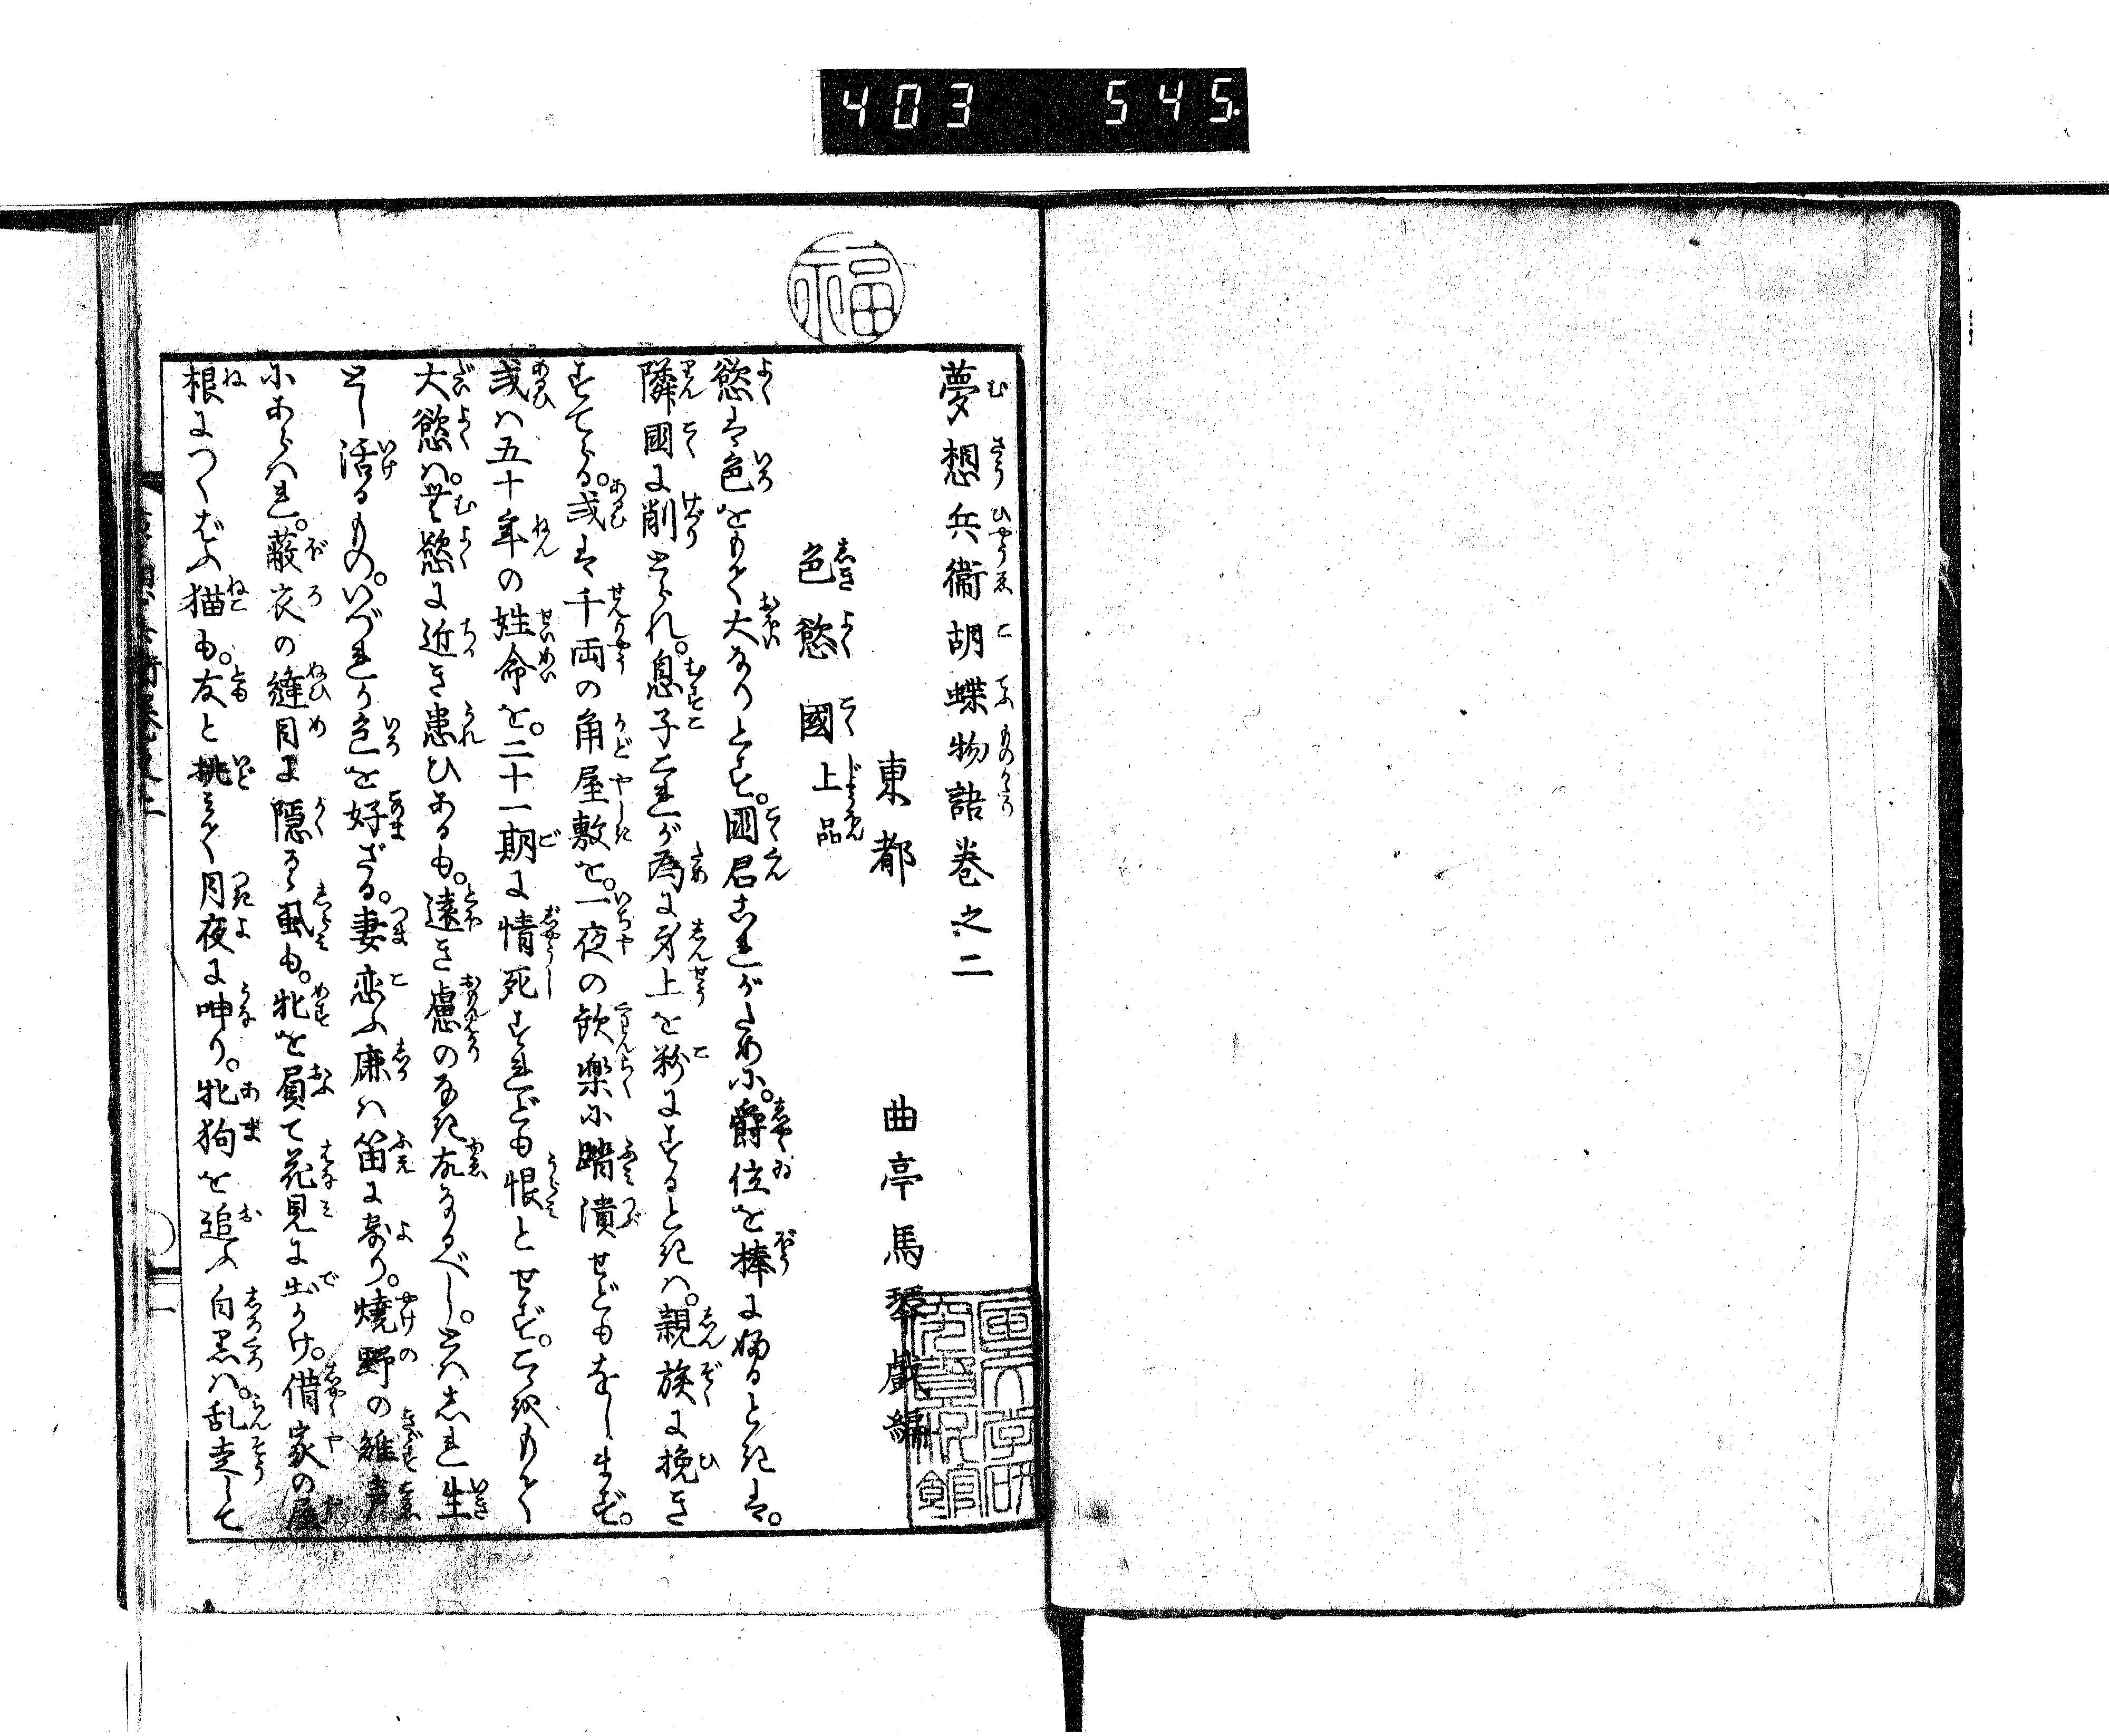 403 545.
福
夢想兵衛胡蝶物語巻之二
東都 曲亭馬琴戯編
色慾國上品
慾は色をもて大なりとす。國君これがために。爵位を棒に揮るときは。
隣國に削とられ。息子これが為に身上を粉にするときは。親族に挽き
すてらる。或は千両の角屋敷を。一夜の飲楽に踏潰せどもをしまず。
或は五十年の姓命を。二十一期に情死すれども恨とせず。こゝをもて
大慾は。無慾に近き患ひあるも。遠き慮のなき故なるべし。とはしれ生
とし活るもの。いづれか色を好ざる。妻恋ふ鹿は笛に寄り。焼野の雉声
にあらはれ。蔽衣の縫目に隠るゝ虱も。牝を負て花見に出かけ。借家の屋
根につくばふ猫も。友と挑みて月夜に呻り。牝狗を追ふ白黒は。乱走して